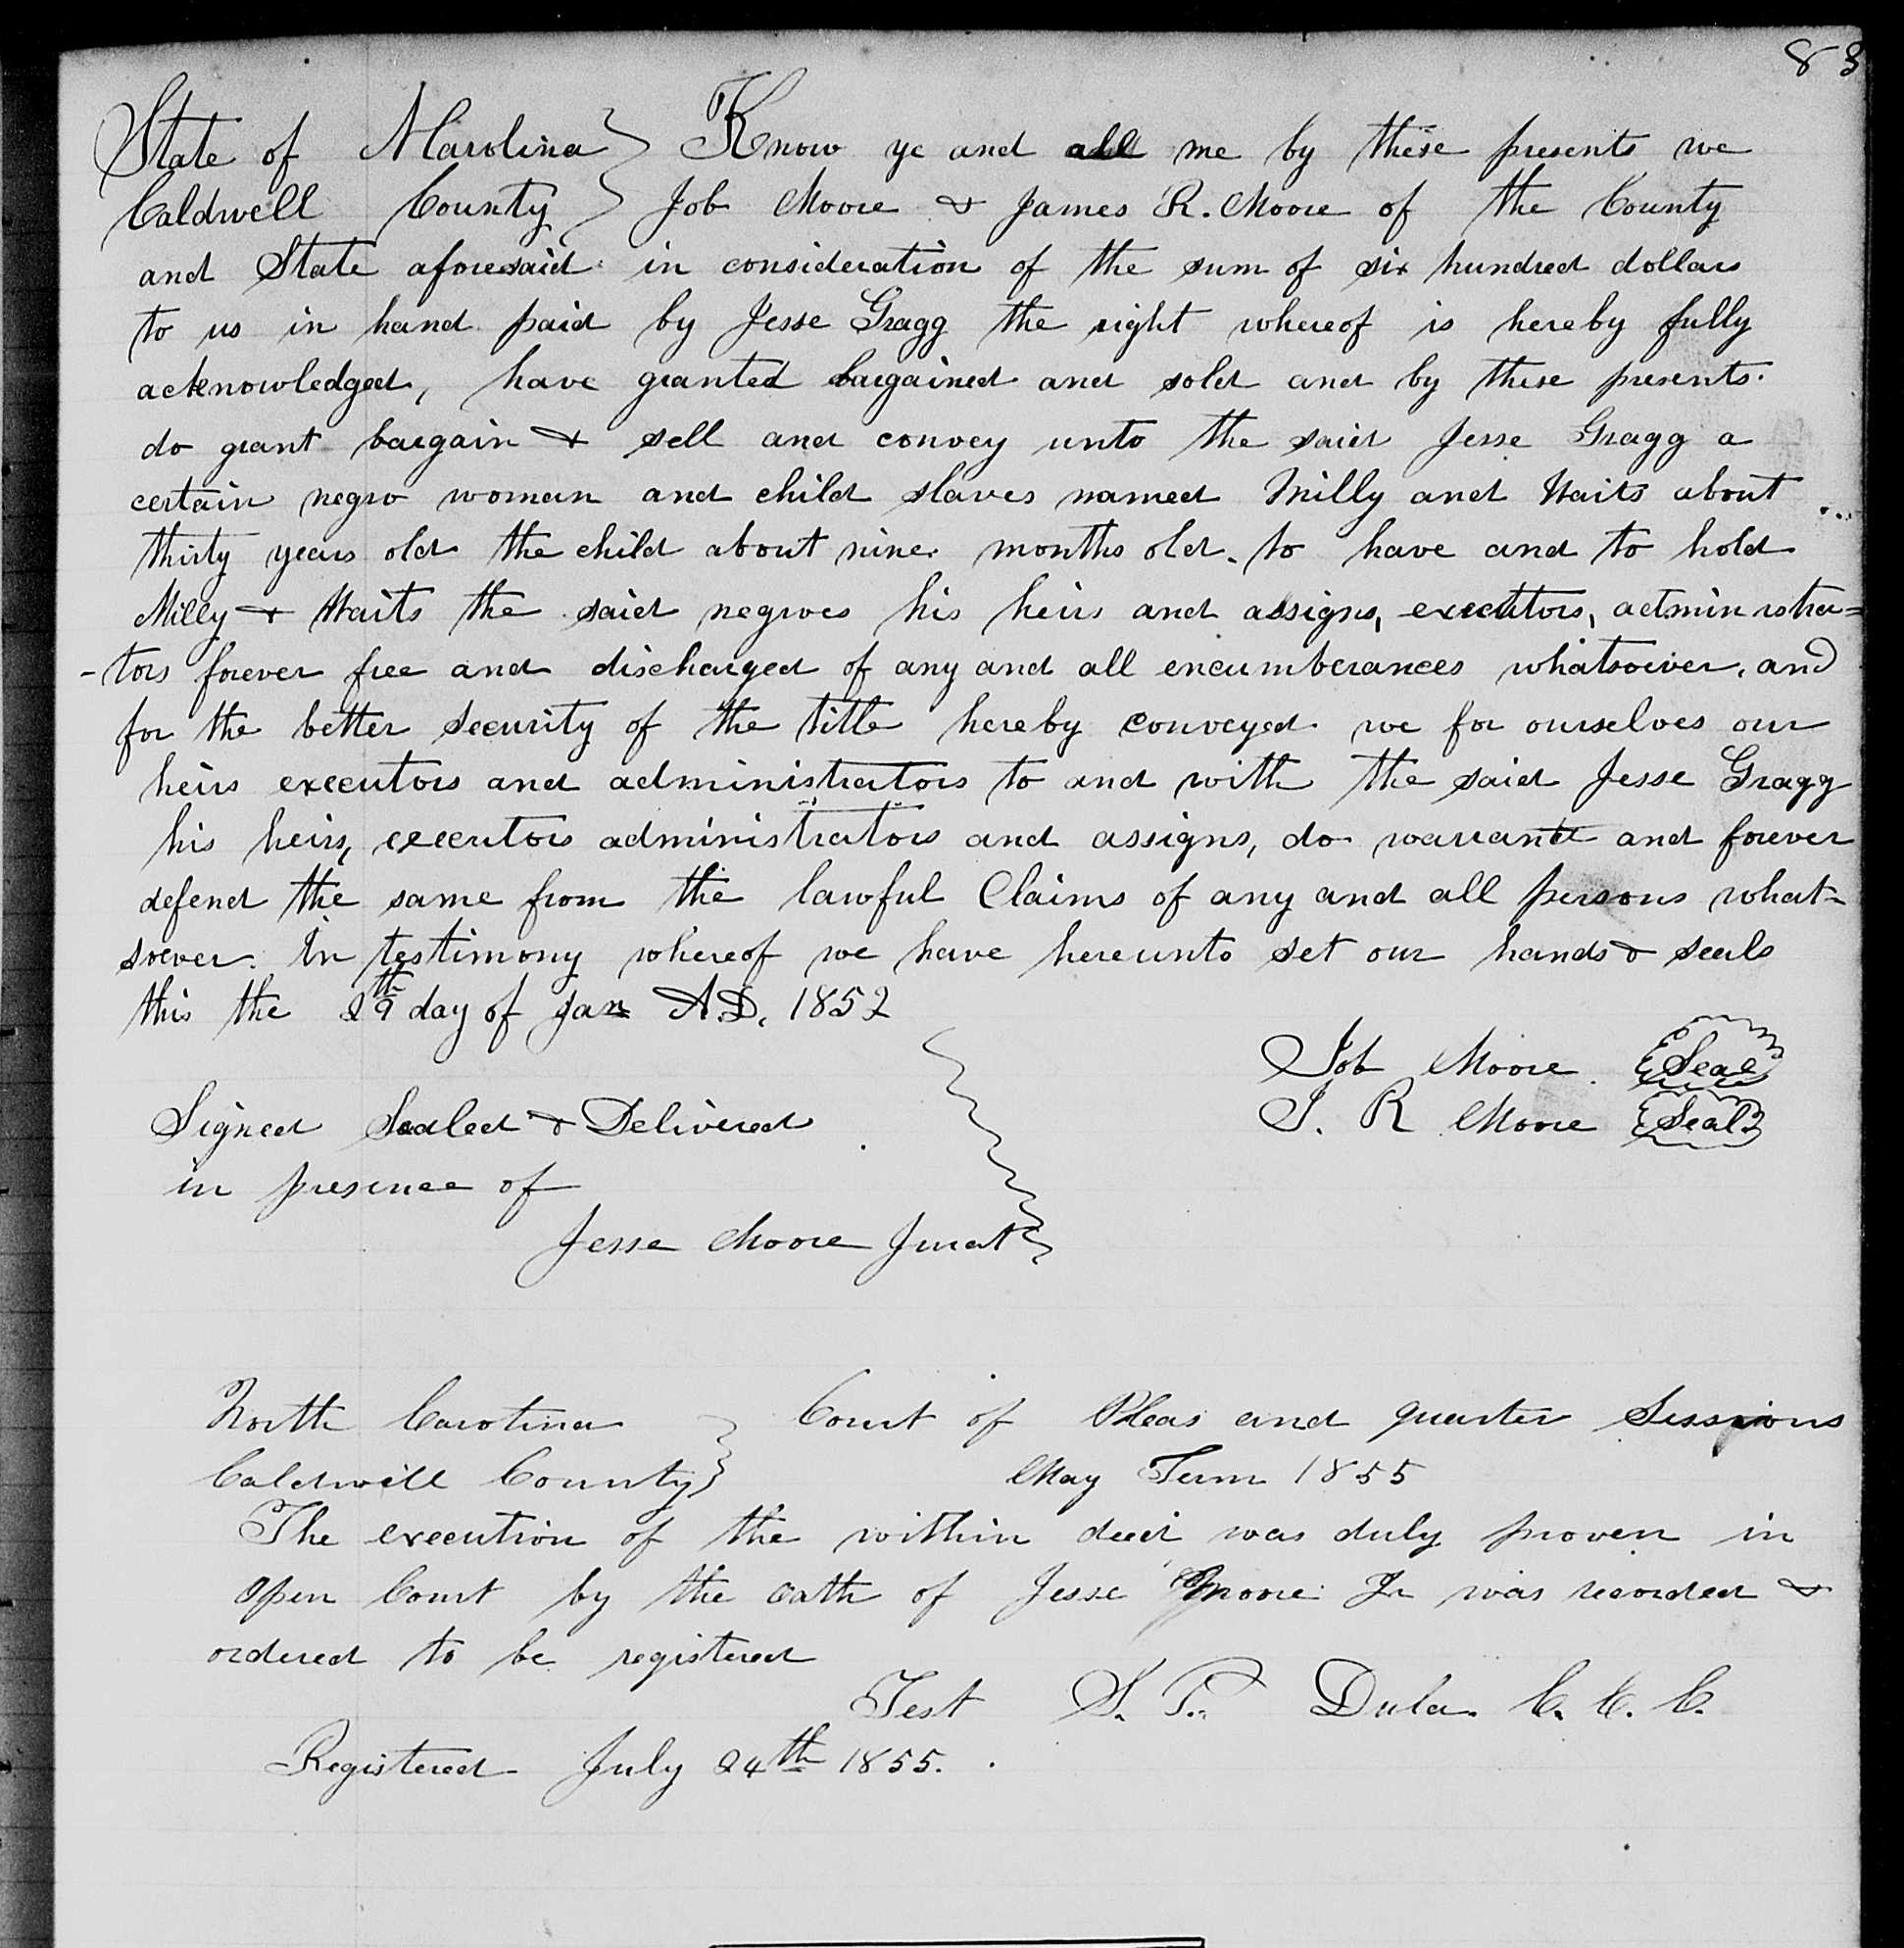 83
State of N Carolina } Know ye and all me by these presents we
Caldwell County } Job Moore & James R. Moore of the County
and State aforesaid in consideration of the sum of six hundred dollars
to us in hand paid by Jesse Gragg the right whereof is hereby fully
acknowledged, have granted bargained and sold and by these presents
do grant bargain & sell and convey unto the said Jesse Gragg a
certain negro woman and child slaves named Milly and Waits about
thirty years old the child about nine months old. to have and to hold
Milly & Waits the said negroes his heirs and assigns, executors, administra=
-tors forever free and discharged of any and all encumberances whatsoever, and
for the better security of the title hereby conveyed we for ourselves our
heirs executors and administrators to and with the said Jesse Gragg
his heirs, executors administrators and assigns, do warrant and forever
defend the same from the lawful Claims of any and all persons what-
soever. In testimony whereof we have hereunto set our hands & seals
this the 29th day of Jan A.D. 1852
Job Moore Seal
J. R Moore Seal
Signed Sealed & Delivered
in presence of
Jesse Moore Jurat
North Carolina } Court of Pleas and quarter Sessions
Caldwell County } May Term 1855
The execution of the within deed was duly proven in
open Court by the oath of Jesse Moore Jr was recorded &
ordered to be registered
Test S. P. Dula C. C. C.
Registered July 24th 1855.